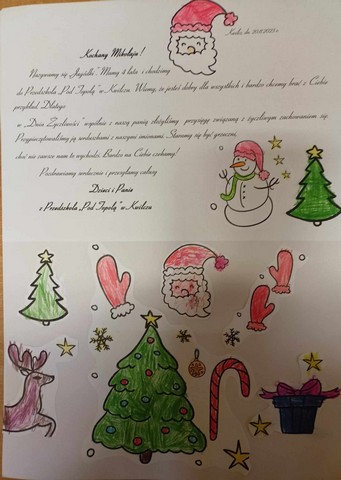 Kwilcz, dn. 20.11.2023 r.
Kochany Mikołaju!
Nazywamy się „Jagódki”. Mamy 4 lata i chodzimy
do Przedszkola „Pod Topolą” w Kwilczu. Wiemy, że jesteś dobry dla wszystkich i bardzo chcemy brać z Ciebie
przykład. Dlatego
w „Dniu Życzliwości” wspólnie z naszą panią złożyliśmy przysięgę związaną z życzliwym zachowaniem się.
Przypieczętowaliśmy ją serduszkami z naszymi imionami. Staramy się być grzeczni,
choć nie zawsze nam to wychodzi. Bardzo na Ciebie czekamy!
Pozdrawiamy serdecznie i przesyłamy całusy
Dzieci i Pania
z Przedszkola „Pod Topolą” w Kwilczu